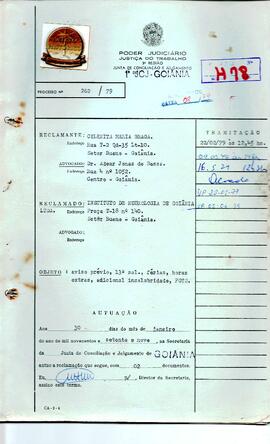 PODER JUDICIÁRIO
JUSTIÇA DO TRABALHO
3ª REGIÃO
JUNTA DE CONCILIAÇÃO E JULGAMENTO
1ª JCJ-GOIÂNIA
H78
PROCESSO Nº 260 / 79
RECLAMANTE: CELENITA MARIA BRAGA.
Endereço Rua T-2 Qd-35 Lt-10.
Setor Bueno - Goiânia.
ADVOGADO: Dr.
Endereço Rua 4 nº 1052.
Centro - Goiânia.
RECLAMADO: INSTITUTO DE NEUROLOGIA DE GOIÂNIA
LTDA.
Endereço Praça T-18 nº 140.
Setor Bueno - Goiânia.
ADVOGADO:
Endereço
OBJETO: aviso prévio, 13º sal., férias, horas
extras, adicional insalubridade, FGTS.
TRAMITAÇÃO
22/02/79 às 12,45 hs
AUTUAÇÃO
Aos 30 dias do mês de janeiro
do ano de mil novecentos e setenta e nove, na Secretaria
da Junta de Conciliação e Julgamento de GOIÂNIA
autuo a reclamação que segue, com 02 documentos.
Diretor da Secretaria,
assino este termo.